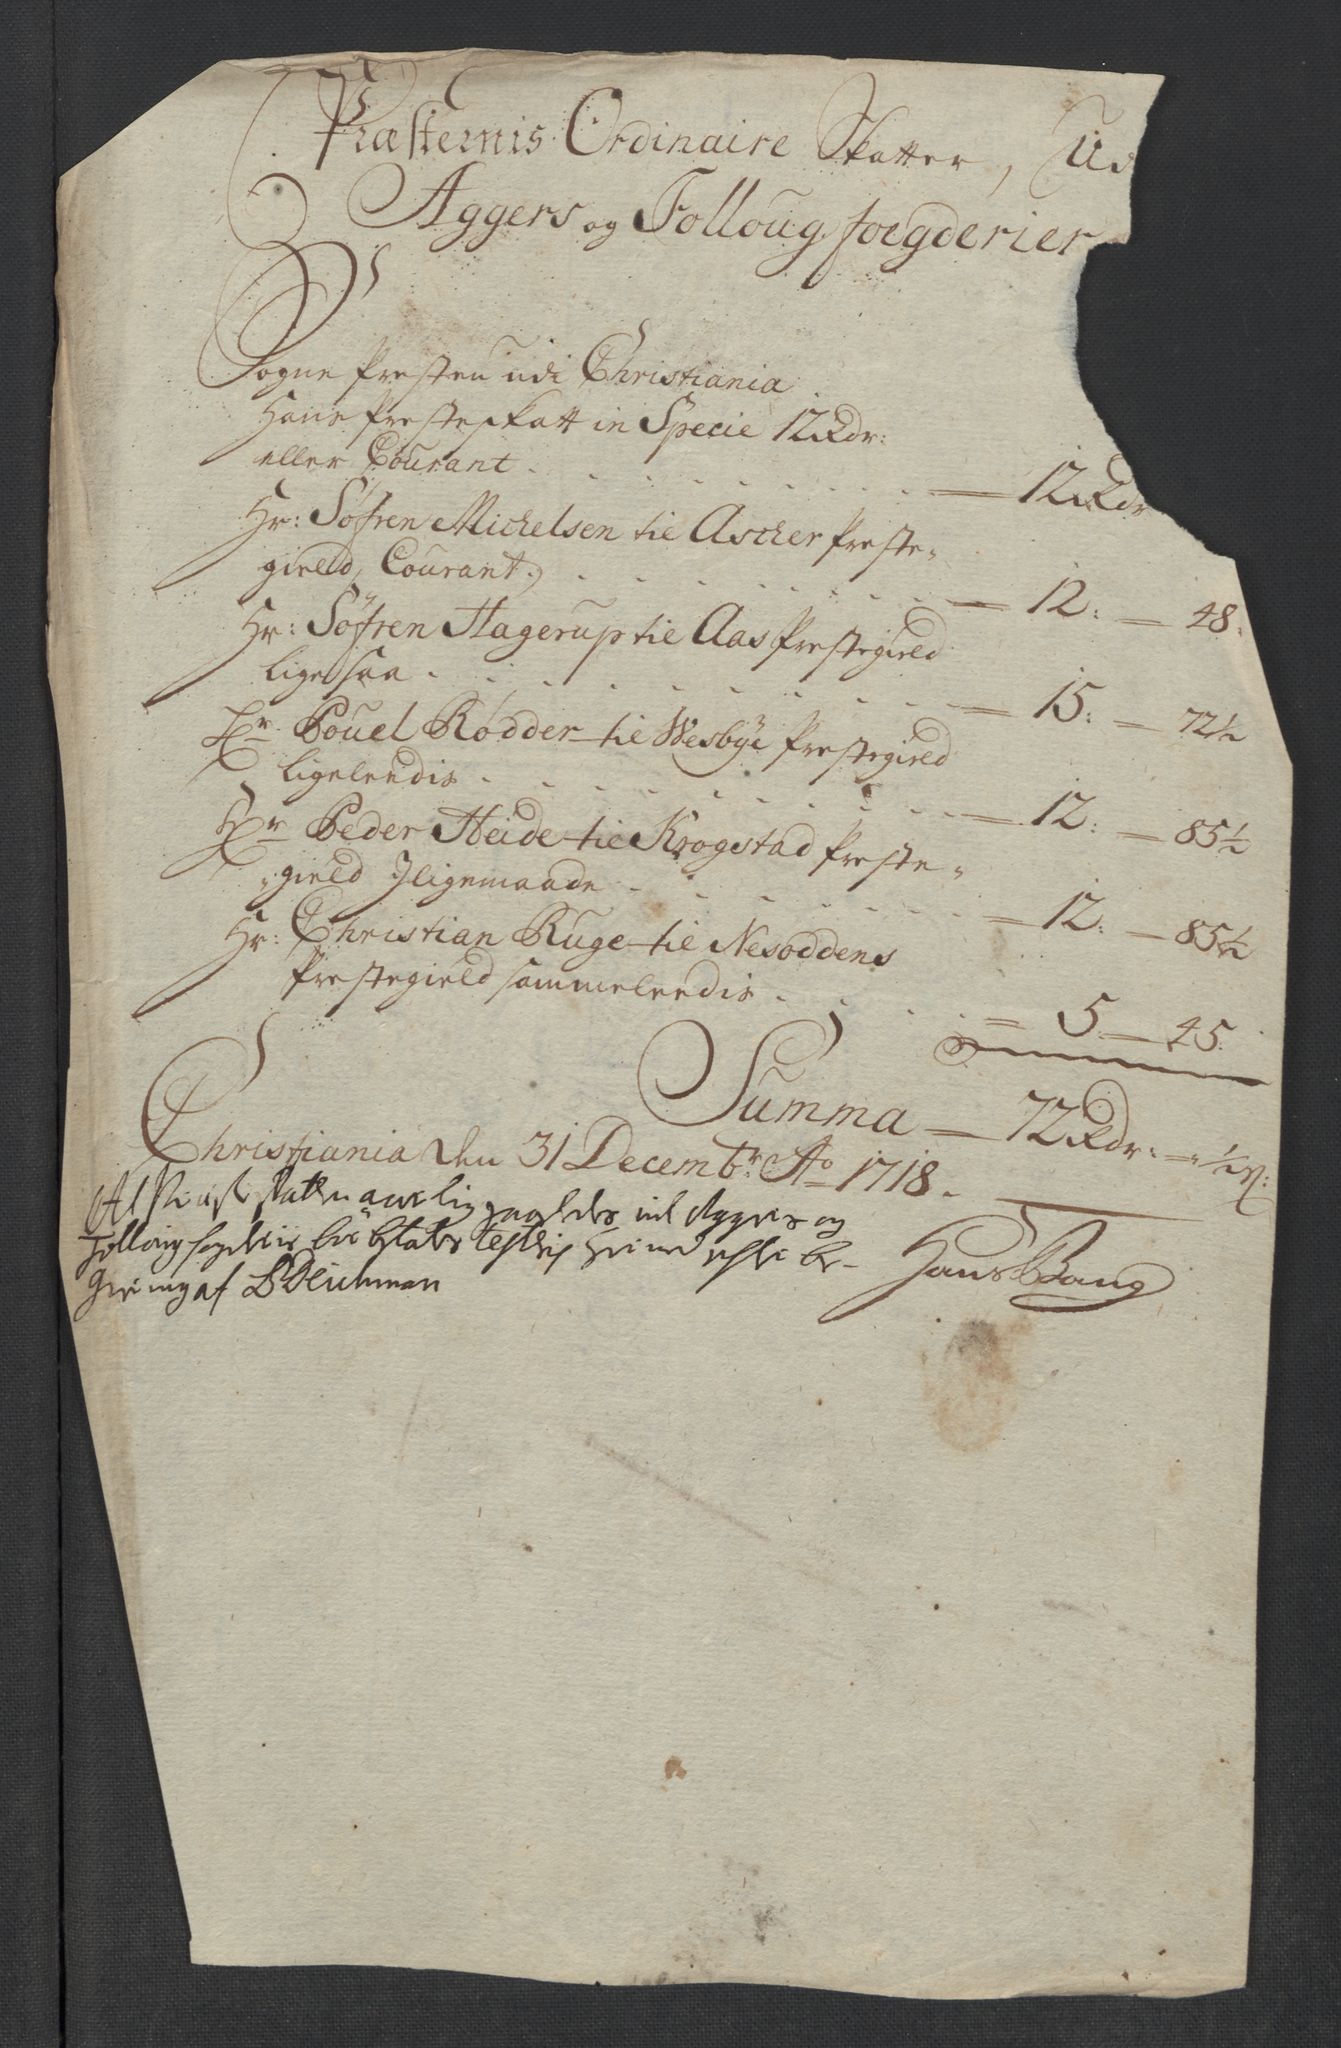 Præsternis Ordinaire Skatter, Ud
Aggers og Folloug foegderier
Sogne Presten udi Christiania
Hans Presteskatt in Specie 12 Rdr:
eller Courant . . . . . . . . — 12 Rdr
Hr: Söfren Michelsen til Ascher Preste-
gield, Courant. . . . . . . . — 12: — 48.
Hr: Söfren Hagerup til Aas Prestegield
ligesaa . . . . . . . . — 15: — 72½
Hr Pouel Rodder til Wesbye Prestegield
ligeleedis . . . . . . . . — 12: — 85½
Hr Peder Heide til Krogstad Preste-
gield Jligemaade . . . . . . . — 12: — 85½
Hr: Christian Ruge til Nesoddens
Prestegield sammeleedis . . . . = 5 — 45.
Summa — 72 Rdr: — " ½ s:
Christiania den 31 Decembr Ao 1718.
At skatten aarlig udi Aggers og
Folloug
af Hans Bang